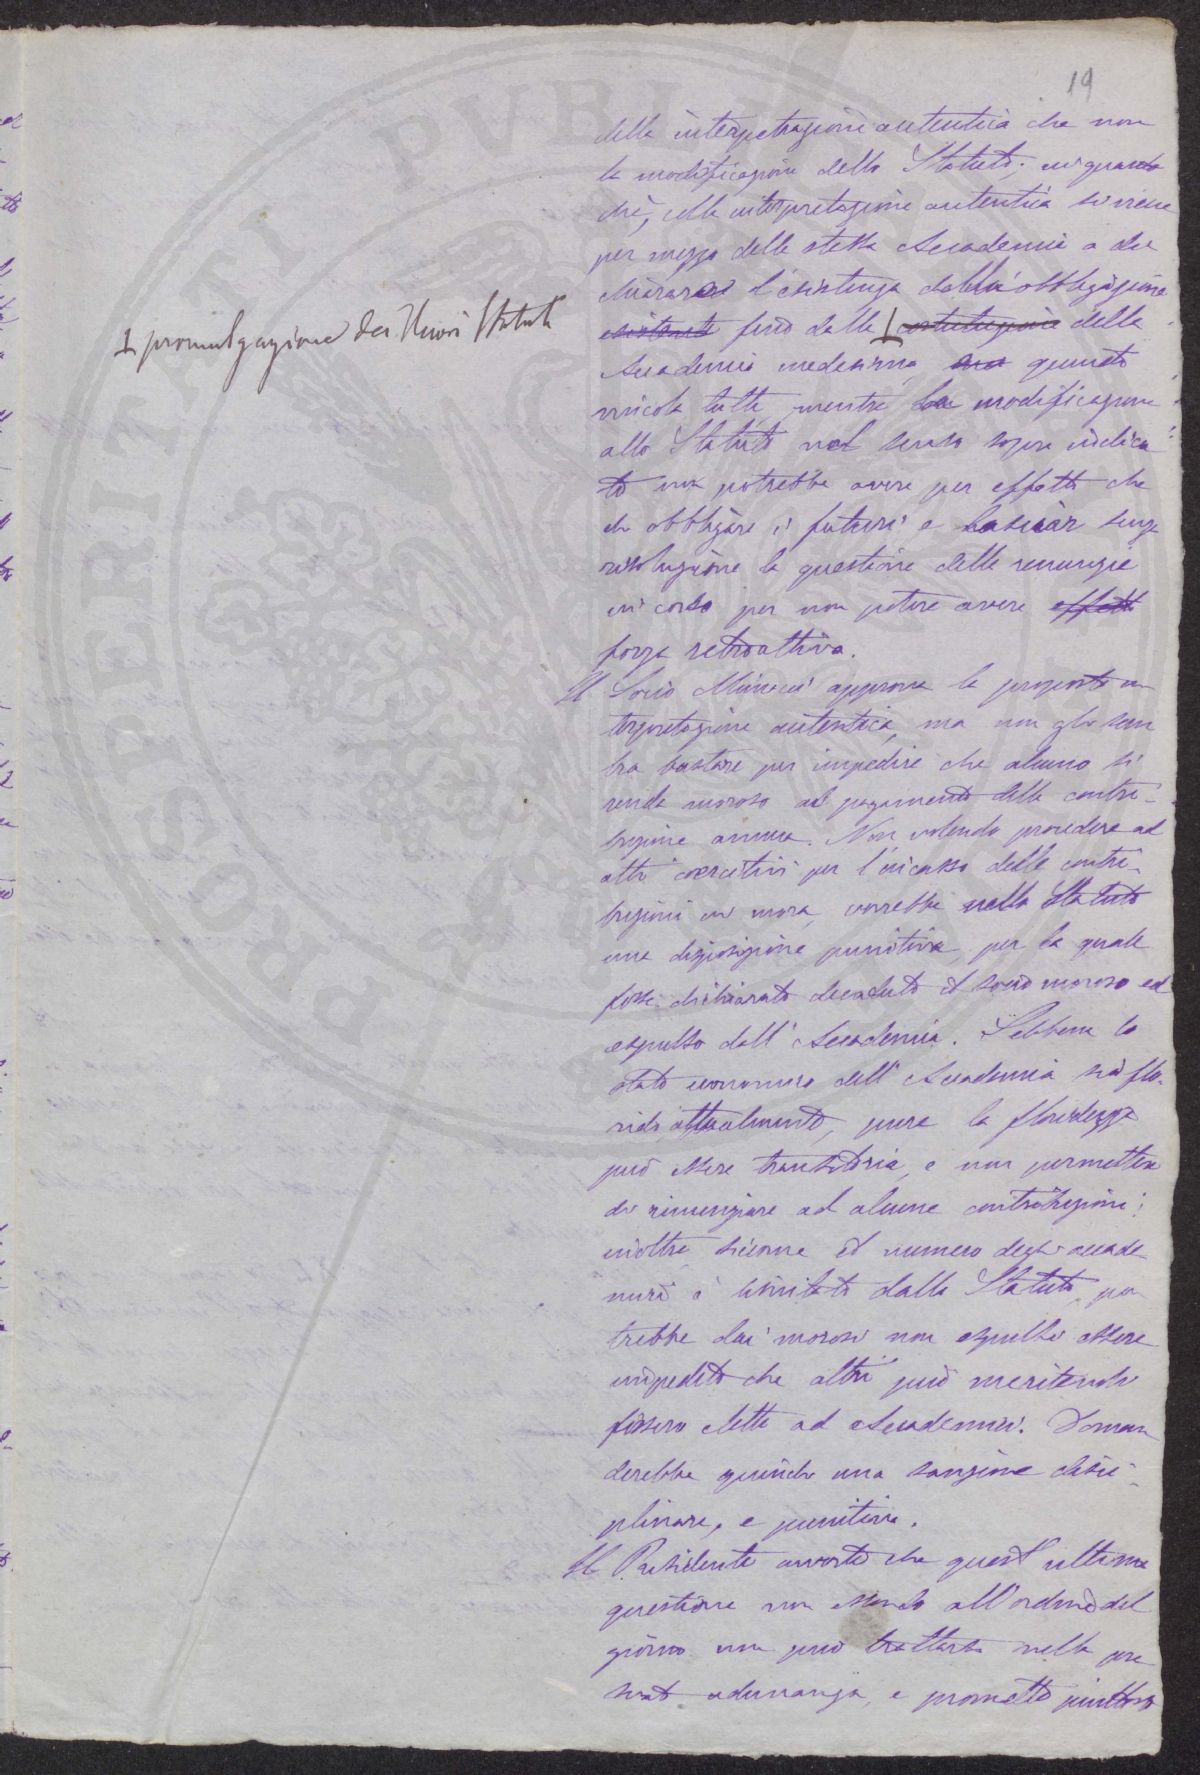 19
della interpetrazione autentica che non
la modificazione dello Statuto; in quanto
chè, colla interpretazione autentica si viene
per mezzo della stessa Accademia a di
chiarare l'esistenza della obbligazione
esistente fino dalla ⊥ costituzione della
⊥ promulgazione dei Nuovi Statuti
Accademia medesima, ma quindi
vincola tutti, mentre la modificazione
allo Statuto nel senso sopra indica
to non potrebbe avere per effetto che
di obbligare i futuri e lasciar senza
risoluzione la questione delle renunzie
in corso per non potere avere effetto
forza retroattiva.
Il Socio Minucci approva la proposta in
terpretazione autentica, ma non gli sem
bra bastare per impedire che alcuno si
renda moroso al pagamento della contri-
buzione annua. Non volendo procedere ad
atti coercitivi per l'incasso delle contri-
buzioni in mora, vorrebbe nello Statuto
una disposizione punitiva, per la quale
fosse dichiarato decaduto il socio moroso ed
espulso dall'Accademia. Sebbene lo
stato economico dell'Accademia sia flo-
rido attualmente, pure la floridezza
può essere transitoria, e non permettere
di rinunziare ad alcune contribuzioni;
inoltre, siccome il numero degli accade
mici è limitato dallo Statuto, po
trebbe dai morosi non espulsi essere
impedito che altri più meritevoli
fossero eletti ad Accademici. Doman
derebbe quindi una sanzione disci-
plinare, e punitiva.
Il Presidente avverte che quest'ultima
questione non essendo all'ordine del
giorno non può trattarsi nella pre
sente adunanza, e promette piuttosto